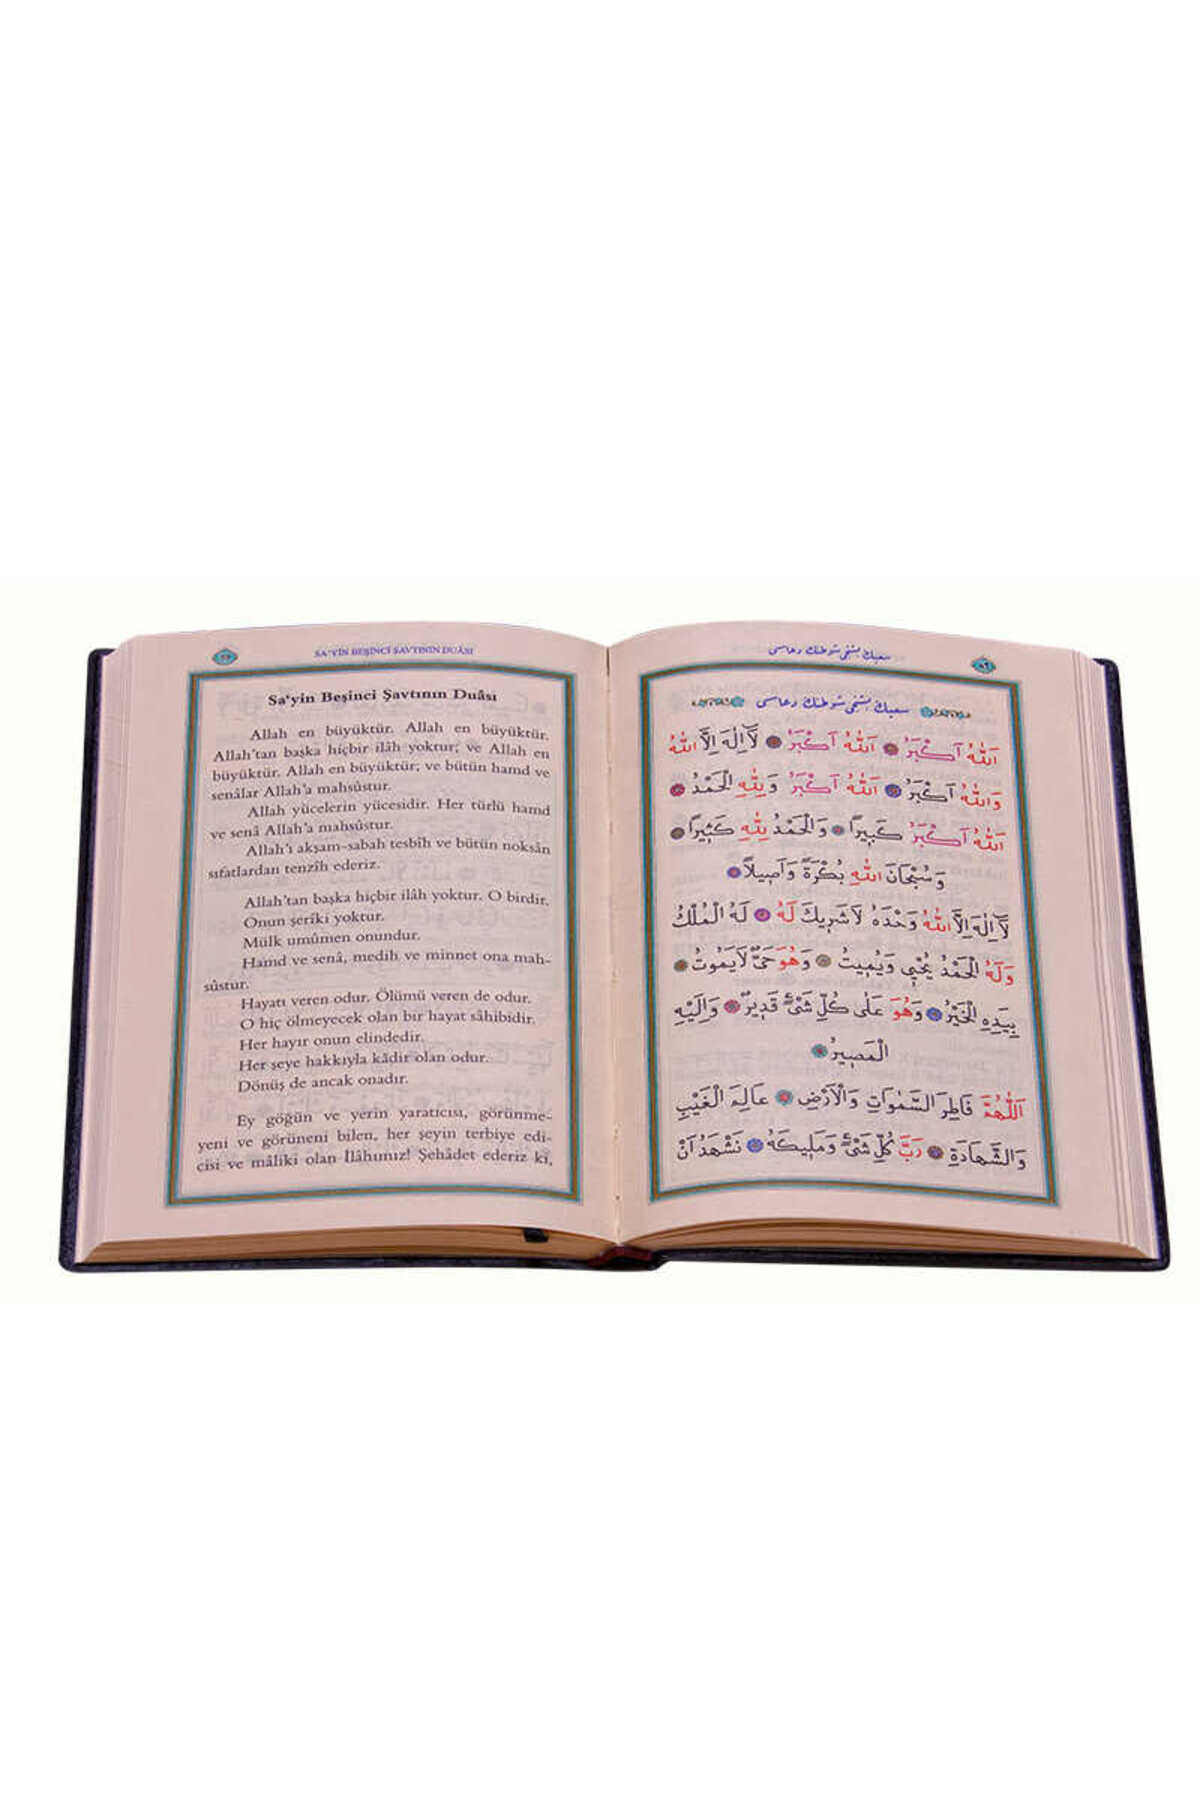 SA'YİN BEŞİNCİ ŞAVTININ DUÂSI
Sa'yin Beşinci Şavtının Duâsı
Allah en büyüktür. Allah en büyüktür.
Allah'tan başka hiçbir ilâh yoktur; ve Allah en
büyüktür. Allah en büyüktür; ve bütün hamd ve
senâlar Allah'a mahsûstur.
Allah yücelerin yücesidir. Her türlü hamd
ve senâ Allah'a mahsûstur.
Allah'ı akşam-sabah tesbîh ve bütün noksân
sıfatlardan tenzîh ederiz.
Allah'tan başka hiçbir ilâh yoktur. O birdir.
Onun şerîki yoktur.
Mülk umûmen onundur.
Hamd ve senâ, medih ve minnet ona mah-
sûstur.
Hayatı veren odur. Ölümü veren de odur.
O hiç ölmeyecek olan bir hayat sâhibidir.
Her hayır onun elindedir.
Her şeye hakkıyla kâdir olan odur.
Dönüş de ancak onadır.
Ey göğün ve yerin yaratıcısı, görünme-
yeni ve görüneni bilen, her şeyin terbiye edi-
cisi ve mâliki olan İlâhımız! Şehâdet ederiz ki,
سعينك بشنجى شوطنك دعاسى
٨٩
سعينك بشنجى شوطنك دعاسى
اَللّٰهُ اَكْبَرُ اَللّٰهُ اَكْبَرُ لَآ اِلٰهَ اِلَّا اللّٰهُ
وَاللّٰهُ اَكْبَرُ اَللّٰهُ اَكْبَرُ وَلِلّٰهِ الْحَمْدُ
اَللّٰهُ اَكْبَرُ كَبِيرًا وَالْحَمْدُ لِلّٰهِ كَثِيرًا
وَسُبْحَانَ اللّٰهِ بُكْرَةً وَاَصِيلًا
لَآ اِلٰهَ اِلَّا اللّٰهُ وَحْدَهُ لَا شَرِيكَ لَهُ لَهُ الْمُلْكُ
وَلَهُ الْحَمْدُ يُحْيِى وَيُمِيتُ وَهُوَ حَىٌّ لَا يَمُوتُ
بِيَدِهِ الْخَيْرُ وَهُوَ عَلٰى كُلِّ شَىْءٍ قَدِيرٌ وَاِلَيْهِ
الْمَصِيرُ
اَللّٰهُمَّ فَاطِرَ السَّمٰوَاتِ وَالْاَرْضِ عَالِمَ الْغَيْبِ
وَالشَّهَادَةِ رَبَّ كُلِّ شَىْءٍ وَمَلِيكَهُ نَشْهَدُ اَنْ